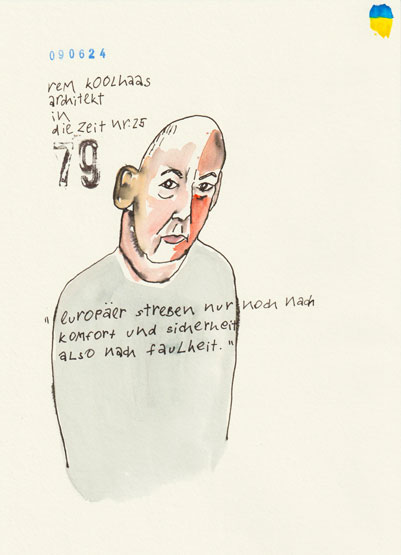 090624
rem koolhaas
architekt
in
die zeit nr. 25
79
"europäer streben nur noch nach
komfort und sicherheit
also nach faulheit."